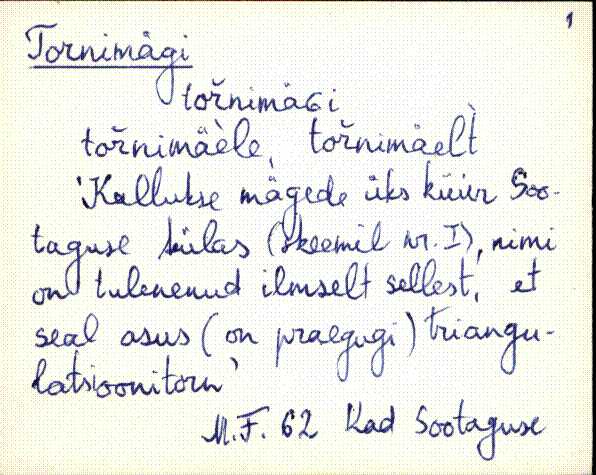 1
Tornimägi
tořnimäGi
tořnimäèle, tořnimäelt̀
'Kallukse mägede üks küür Soo-
taguse külas (skeemil nr. I), nimi
on tulenenud ilmselt sellest, et
seal asus (on praegugi) triangu-
latsioonitorn'
M.F. 62 Kad Sootaguse